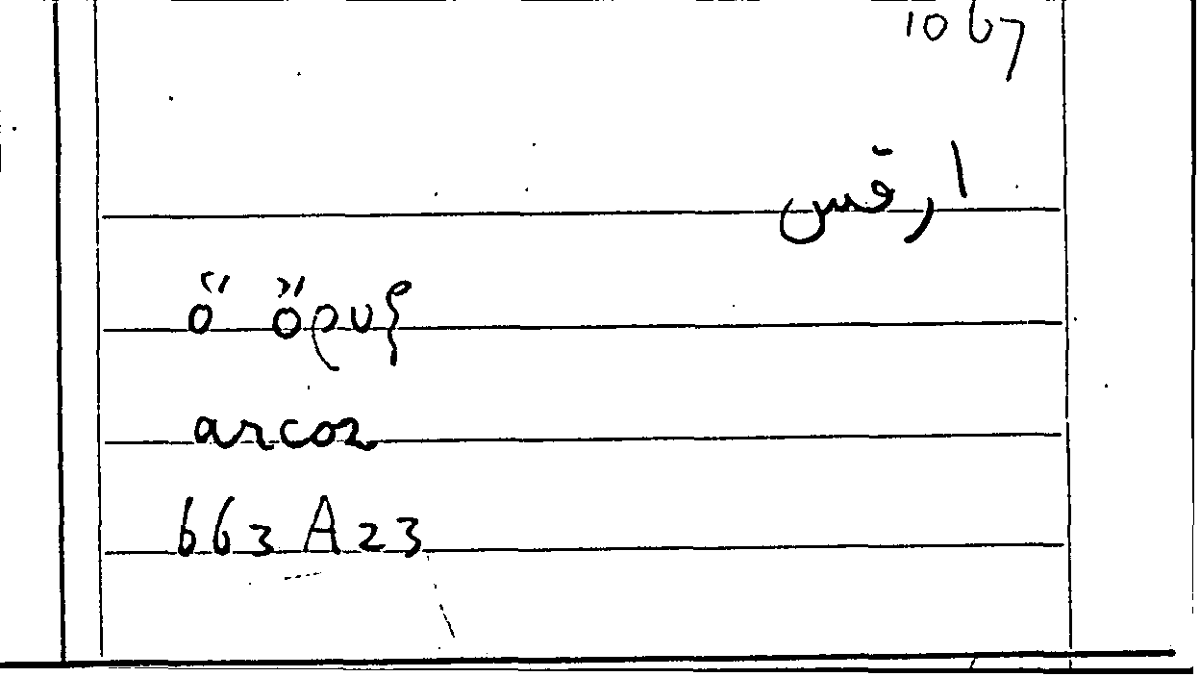 1067
ارقس
ὁ ὄρυξ
arcos
663A23